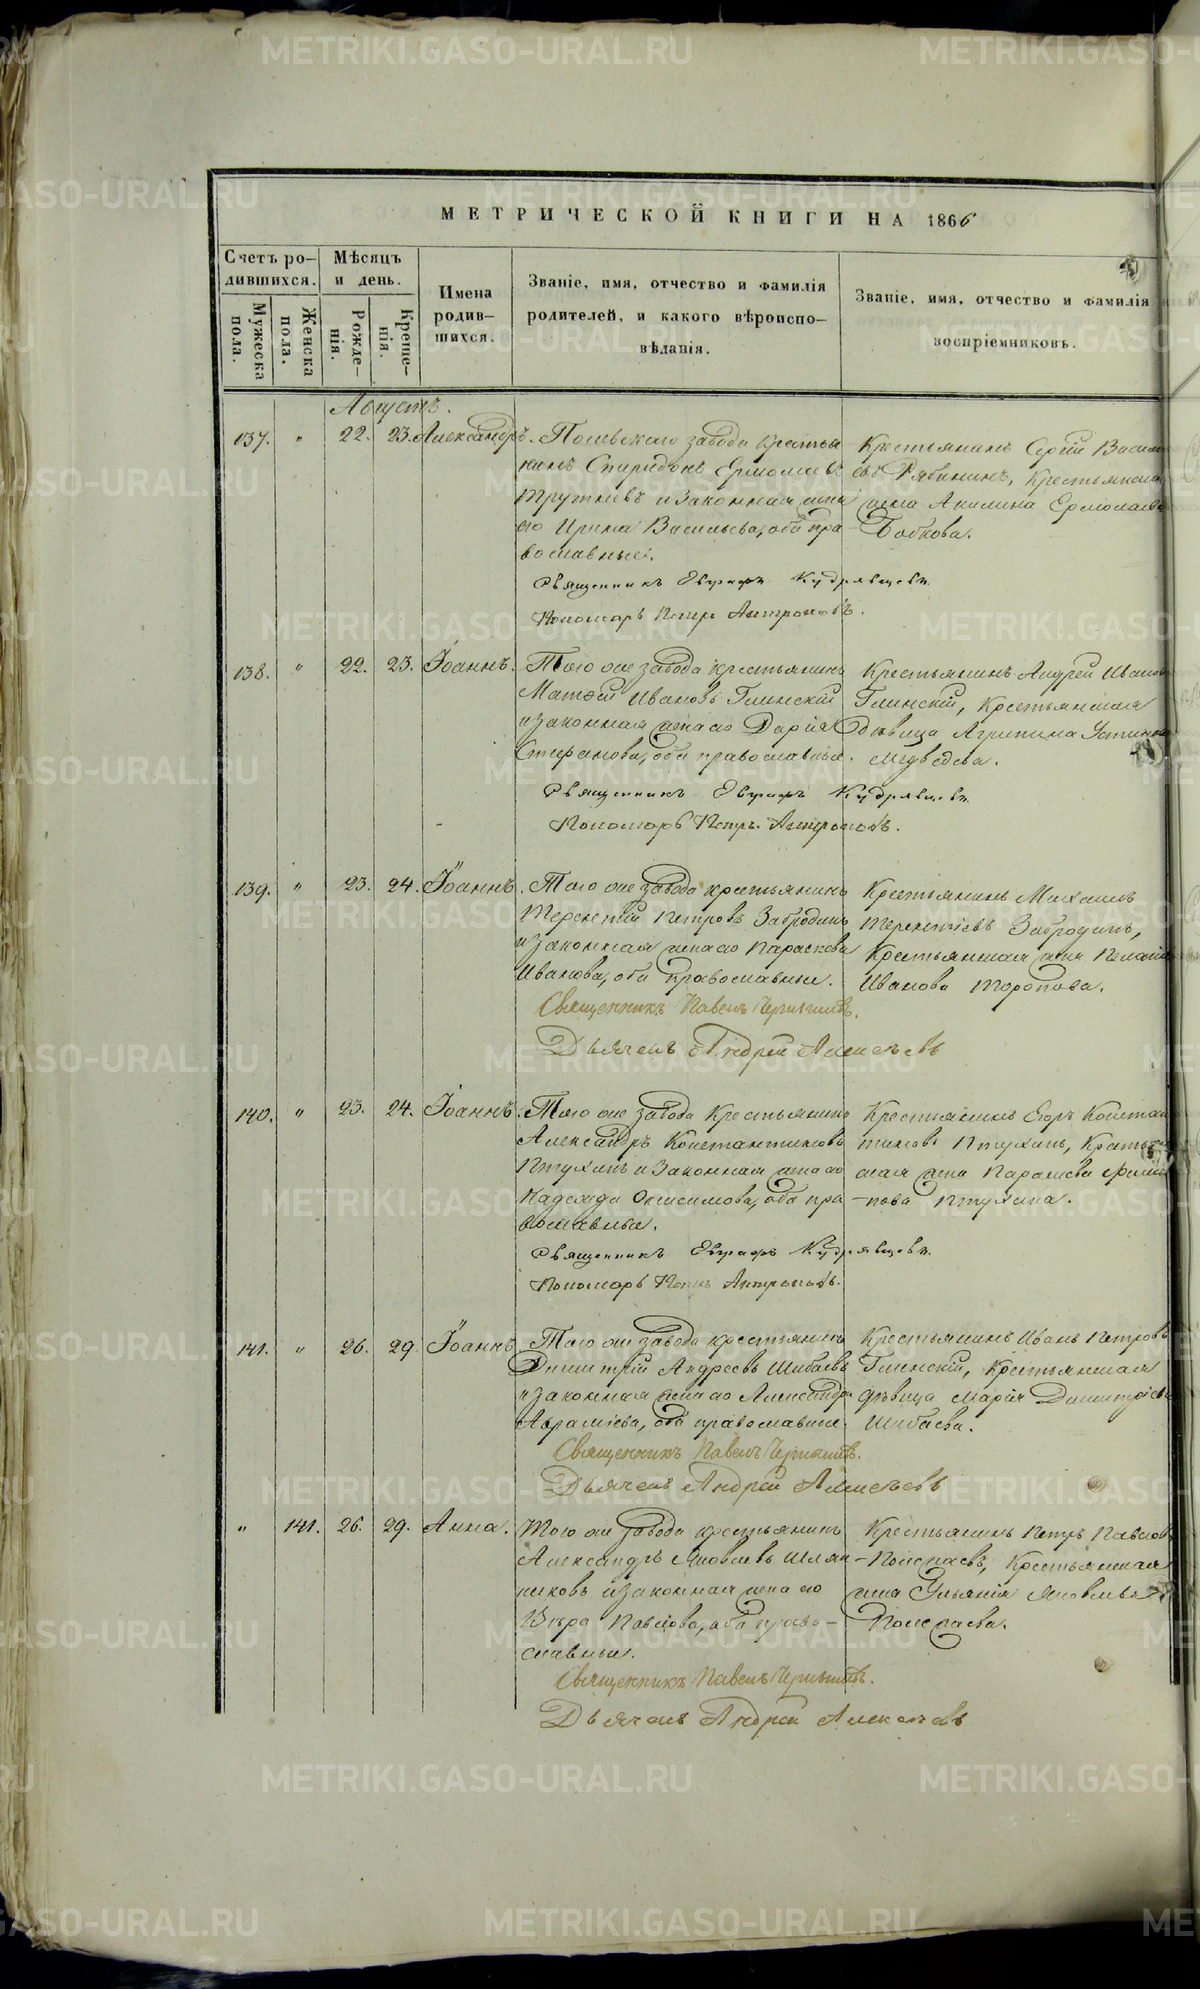 МЕТРИЧЕСКОЙ КНИГИ НА 1866
Счетъ ро-
дившихся.
Мѣсяцъ
и день.
Мужеска
пола.
Женска
пола.
Рожде-
нія.
Креще-
нія.
Имена
родив-
шихся.
Званіе, имя, отчество и фамилія
родителей, и какого вѣроиспо-
вѣданія.
Званіе, имя, отчество и фамилія
воспріемниковъ.
Августъ.
137. " 22. 23. Александръ.
Полевскаго завода крестья
нинъ Спиридонъ Ермолаевъ
Трутневъ и законная жена
его Ирина Васильева, оба пра
вославные.
Крестьянинъ Сергій Василь
евъ Рябининъ, Крестьянская
жена Акилина Ермолаева
Бобкова.
Священникъ Евграфъ Кудрявцевъ
Пономарь Петръ Антроповъ.
138. " 22. 23. Іоаннъ.
Того же завода крестьянинъ
Матвей Ивановъ Глинскій
и законная жена его Дарія
Стефанова, оба православные.
Крестьянинъ Андрей Иванов
Глинскій, Крестьянская
дѣвица Агрипина Устинова
Медведева.
Священникъ Евграфъ Кудрявцевъ
Пономарь Петръ Антроповъ.
139. " 23. 24. Іоаннъ.
Того же завода крестьянинъ
Терентій Петровъ Забродинъ
и законная жена его Параскева
Иванова, оба православные.
Крестьянинъ Михаилъ
Терентіевъ Забродинъ,
Крестьянская жена Пелагія
Иванова Торопова.
Священникъ Павелъ
Дьячекъ Андрей Алексѣевъ
140. " 23. 24. Іоаннъ.
Того же завода Крестьянинъ
Александръ Константиновъ
Птухинъ и Законная жена его
Надежда Онисимова, оба пра
вославные.
Крестьянинъ Егоръ Констан
тиновъ Птухинъ, Крестьян
ская жена Параскева Филип
-пова Птухина.
Священникъ Евграфъ Кудрявцевъ.
Пономарь Петръ Антроповъ.
141. " 26. 29. Іоаннъ.
Того же завода крестьянинъ
Димитрій Андреевъ Шибаевъ
и законная жена его Александра
Абраміева, оба православные.
Крестьянинъ Иванъ Петровъ
Глинскій, Крестьянская
дѣвица Марія Димитріева
Шибаева.
Священникъ Павелъ
Дьячекъ Андрей Алексѣевъ
" 141. 26. 29. Анна.
Того же завода крестьянинъ
Александръ Яковлевъ Шлян
никовъ и законная жена его
Вѣра Павлова, оба право-
славные.
Крестьянинъ Петръ Павлов
жена Ульянія Яковлева
Священникъ Павелъ
Дьячекъ Андрей Алексѣевъ